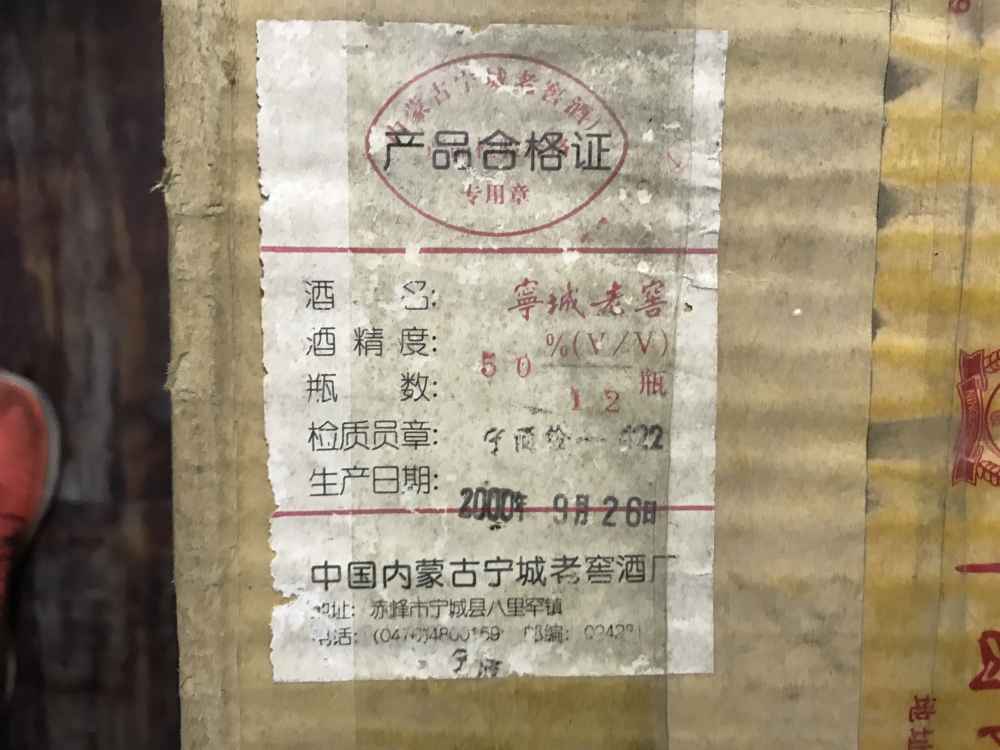 内蒙古宁城老窖酒厂
产品合格证
专用章
酒 名: 寧城老窖
酒精度: 50 %(V/V)
瓶 数: 12 瓶
检质员章: 宁酒检 422
生产日期: 2000年 9月26日
中国内蒙古宁城老窖酒厂
地址: 赤峰市宁城县八里罕镇
电话: 邮编:
宁酒